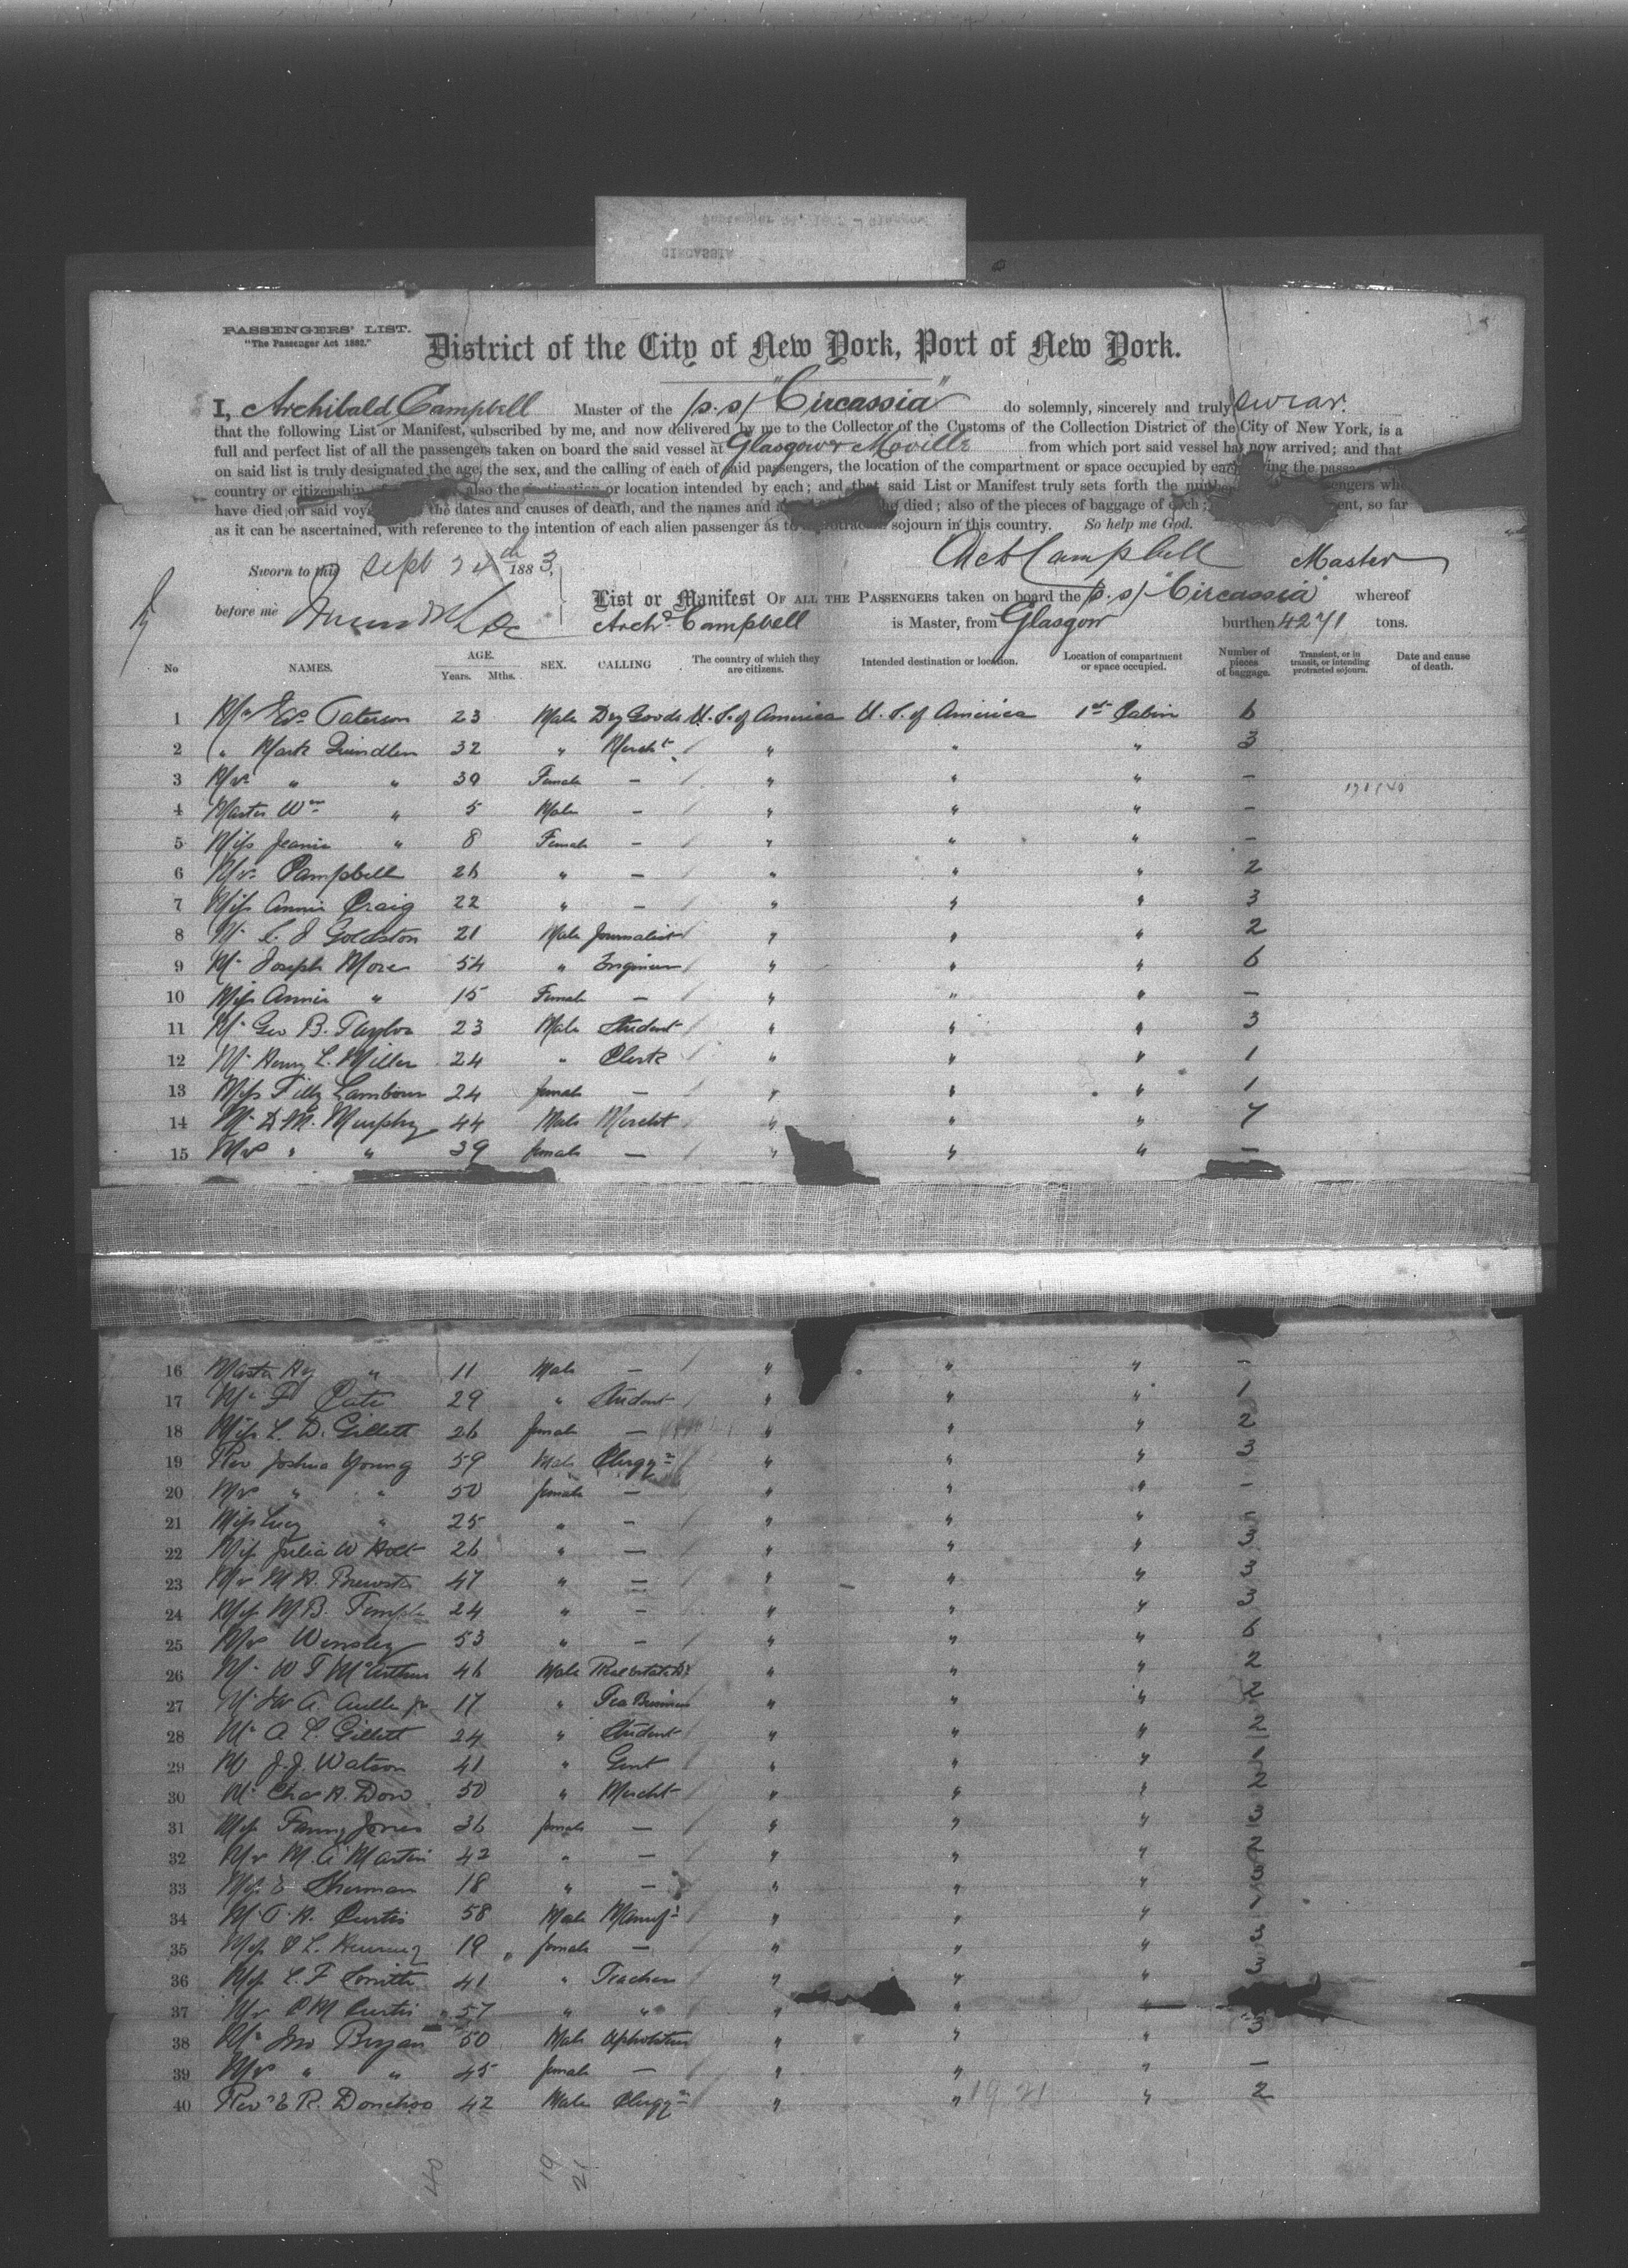 CIRCASSIA
PASSENGERS' LIST.
"The Passenger Act 1882."
District of the City of New York, Port of New York.
I, Archibald Campbell Master of the (s.s) "Circassia" do solemnly, sincerely and truly swear.
that the following List or Manifest, subscribed by me, and now delivered by me to the Collector of the Customs of the Collection District of the City of New York, is a
full and perfect list of all the passengers taken on board the said vessel at Glasgow & Moville from which port said vessel has now arrived; and that
on said list is truly designated the age, the sex, and the calling of each of said passengers, the location of the compartment or space occupied by the
country or citizenship also the or location intended by each; and that said List or Manifest truly sets forth the number
have died on said the dates and causes of death, and the names and died; also of the pieces of baggage of each; so far
as it can be ascertained, with reference to the intention of each alien passenger as to sojourn in this country. So help me God.
Archd Campbell Master
Sworn to this Sept 24th 1883,
before me
List or Manifest OF ALL THE PASSENGERS taken on board the (s.s) "Circassia" whereof
Archd Campbell is Master, from Glasgow burthen 4271 tons.
No NAMES. AGE. Years. Mths. SEX. CALLING The country of which they are citizens. Intended destination or location. Location of compartment or space occupied. Number of pieces of baggage. Transient, or in transit, or intending protracted sojourn. Date and cause of death.
1 Mr Paterson 23 Male Dry Goods U. S. of America U. S. of America 1st Cabin 6
2 " Mark Quindlen 32 " Mercht " " " 3
3 Mrs " " 39 Female — " " " —
4 Master Wm " 5 Male — " " " —
5 Miss Jeanie " 8 Female — " " " —
6 Mrs Campbell 26 " — " " " 2
7 Miss Annie Craig 22 " — " " " 3
8 Mr C. J Goldston 21 Male Journalist " " " 2
9 Mr Joseph More 54 " Engineer " " " 6
10 Miss Annie " 15 Female — " " " —
11 Mr Geo B. Taylor 23 Male Student " " " 3
12 Mr Henry L. Miller 24 " Clerk " " " 1
13 Miss Tilly Lambourn 24 female — " " " 1
14 Mr D. M. Murphy 44 Male Mercht " " " 7
15 Mrs " " 39 female — " " " —
16 Master Hy " 11 Male — " " " —
17 Mr F Cate 29 " Student " " " 1
18 Miss L. D. Gillett 26 female — " " " 2
19 Rev Joshua Young 59 Male Clergyn " " " 3
20 Mrs " " 50 female — " " " —
21 Miss Lucy " 25 " — " " " —
22 Miss Julia W Holt 26 " — " " " 3
23 Mrs M. A. Brewster 47 " — " " " 3
24 Miss M. B. Temple 24 " — " " " 3
25 Mrs Winsley 53 " — " " " 6
26 Mr W T McArthur 46 Male Real estate " " " 2
27 Mr jr 17 " Tea Business " " " 2
28 Mr A L. Gillett 24 " Student " " " 2
29 Mr J. J. Watson 41 " Gent " " "
30 Mr Chas H. Dow 50 " Mercht " " " 2
31 Miss Fanny Jones 36 female — " " " 3
32 Mrs M. A Martin 42 " — " " " 2
33 Miss E Sherman 18 " — " " " 3
34 Mr T. H. Curtis 58 Male Manufr " " "
35 Miss 19 female — " " " 3
36 Miss L. F Smith 41 " Teacher " " " 3
37 Mrs C M Curtis 57 " " " " "
38 Mr Jno Bryan 50 Male Upholsterer " " " 3
39 Mrs " " 45 female — " " " —
40 Revd E R. Donehoo 42 Male Clergyn " " 19 21 " 2
40 19 21